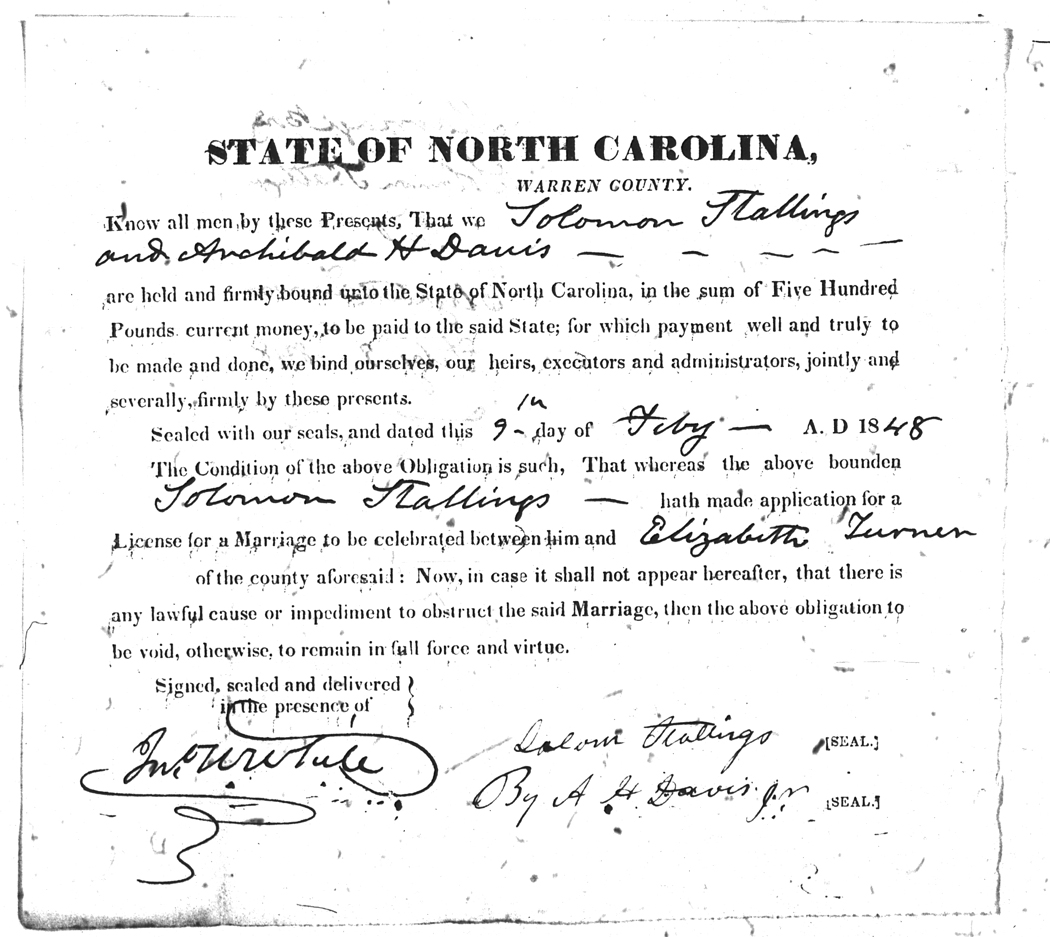 STATE OF NORTH CAROLINA,
WARREN COUNTY.
Know all men by these Presents, That we Solomon Stallings
and Archibald H Davis — — — — —
are held and firmly bound unto the State of North Carolina, in the sum of Five Hundred
Pounds current money, to be paid to the said State; for which payment well and truly to
be made and done, we bind ourselves, our heirs, executors and administrators, jointly and
severally, firmly by these presents.
Sealed with our seals, and dated this 9th day of Feby — A. D 1848
The Condition of the above Obligation is such, That whereas the above bounden
Solomon Stallings — hath made application for a
License for a Marriage to be celebrated between him and Elizabeth Turner
of the county aforesaid: Now, in case it shall not appear hereafter, that there is
any lawful cause or impediment to obstruct the said Marriage, then the above obligation to
be void, otherwise, to remain in full force and virtue.
Signed, sealed and delivered
in the presence of
Jno White
Solom Stallings [SEAL.]
By A H Davis Jr [SEAL.]